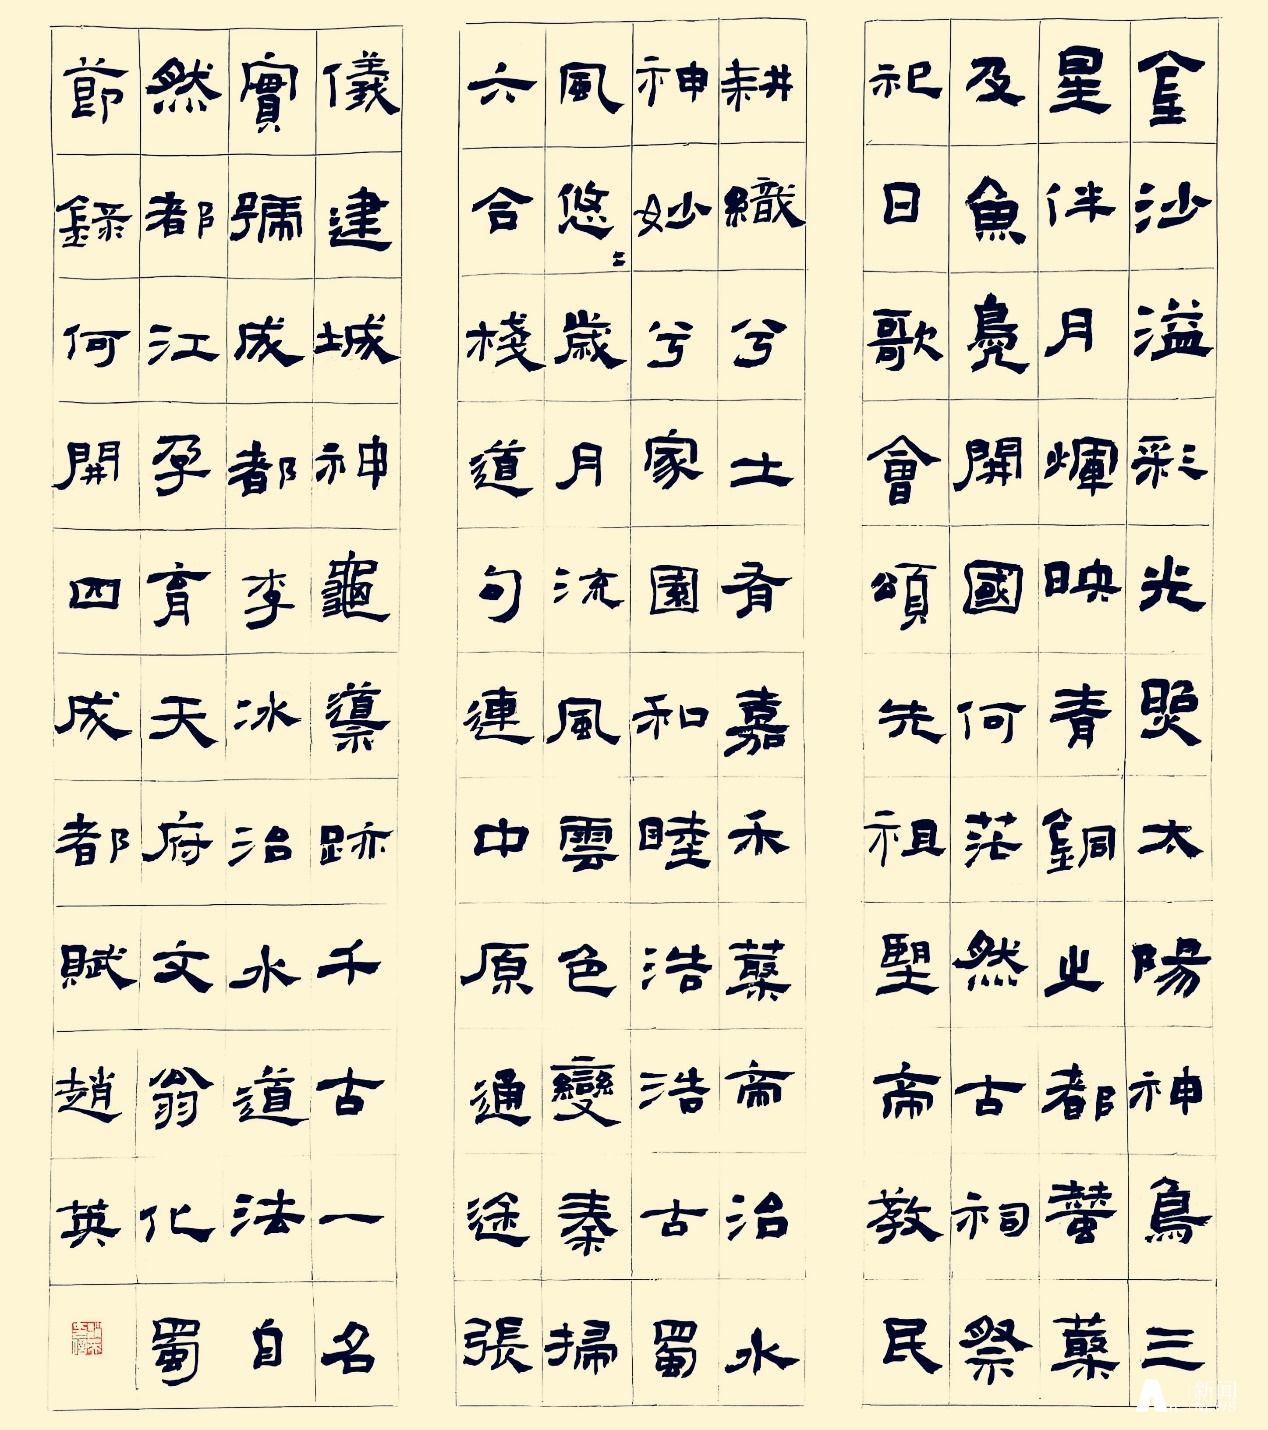 金沙溢彩光照太陽神鳥三
星伴月煇映青銅之都蠶叢
及魚鳧開國何茫然古祠祭
祀日歌會頌先祖望帝教民
耕織兮土有嘉禾叢帝治水
神妙兮家園和睦浩浩古蜀
風悠〻歲月流風雲色變秦掃
六合棧道句連中原通途張
儀建城神龜導跡千古一名
實號成都李冰治水道法自
然都江孕育天府文翁化蜀
節録何開四成都賦趙英
新闻